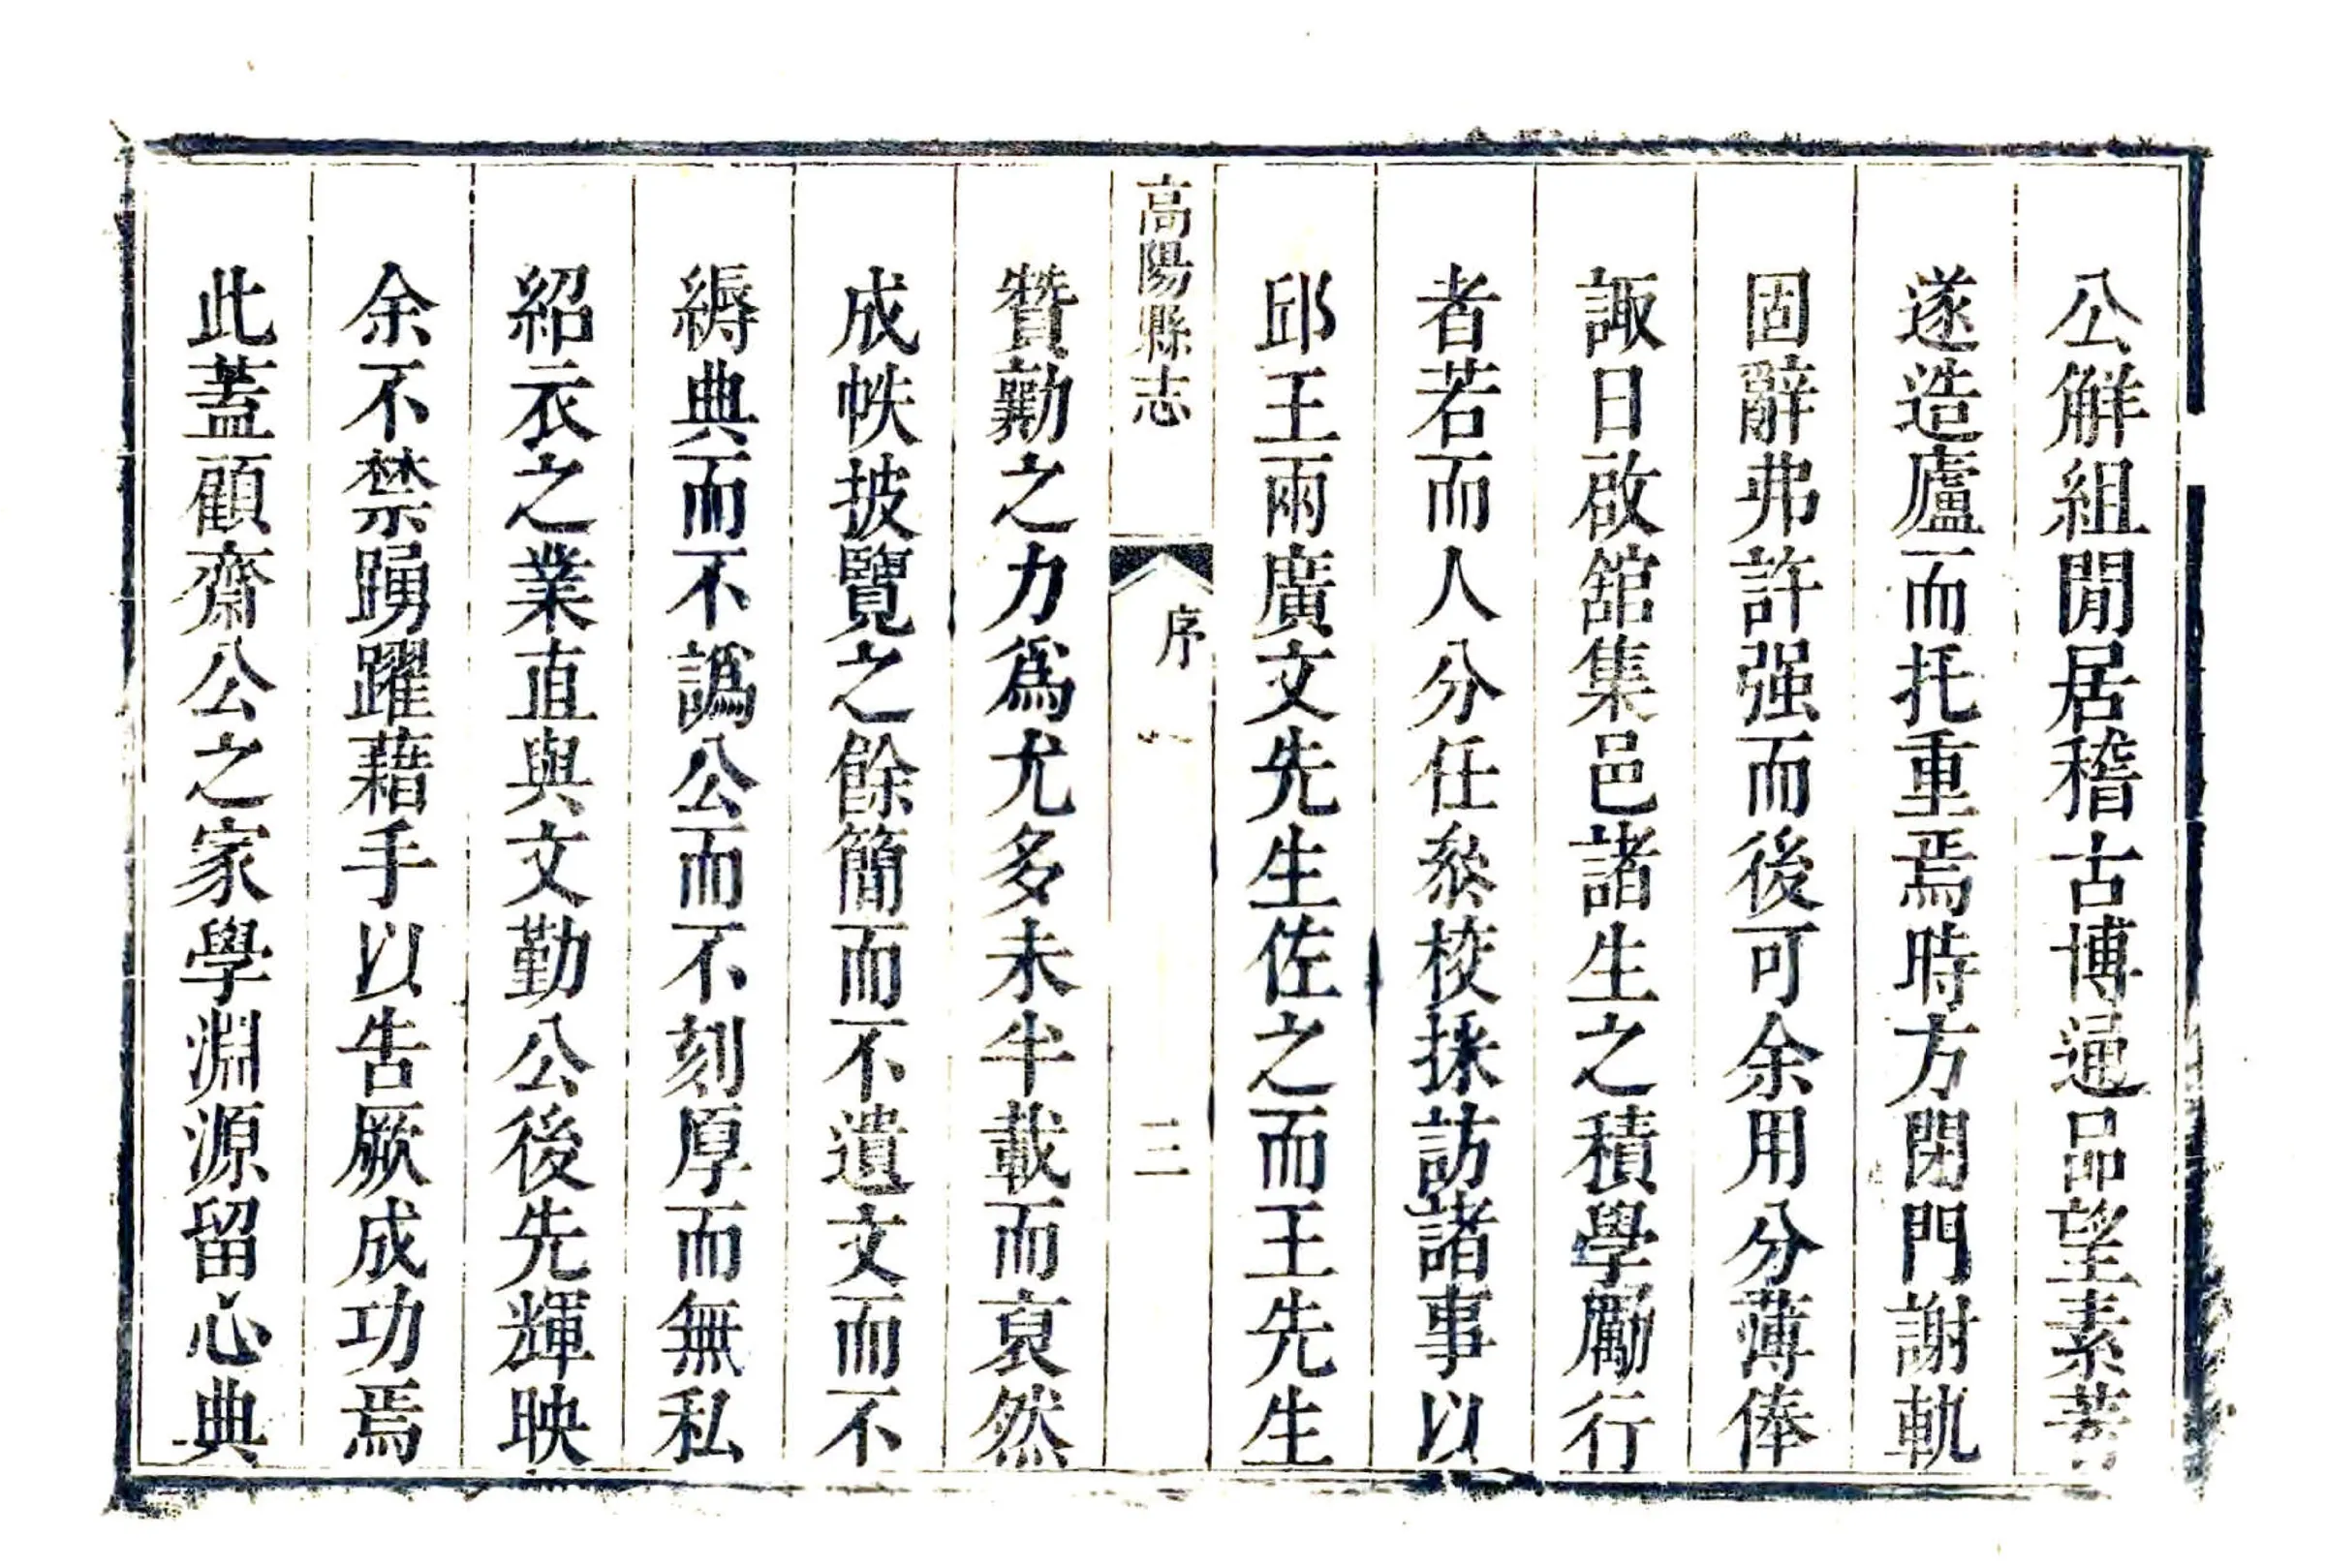 公解組閒居稽古博通品望素著
遂造廬而托重焉時方閉門謝軌
固辭弗許强而後可余用分薄俸
諏日啟舘集邑諸生之積學勵行
者若而人分任叅校採訪諸事以
邱王兩廣文先生佐之而王先生
高陽縣志
序
三
贊勷之力爲尤多未半載而裒然
成帙披覽之餘簡而不遺文而不
縟典而不譌公而不刻厚而無私
紹衣之業直與文勤公後先輝映
余不禁踴躍藉手以告厥成功焉
此蓋顧齋公之家學淵源留心典